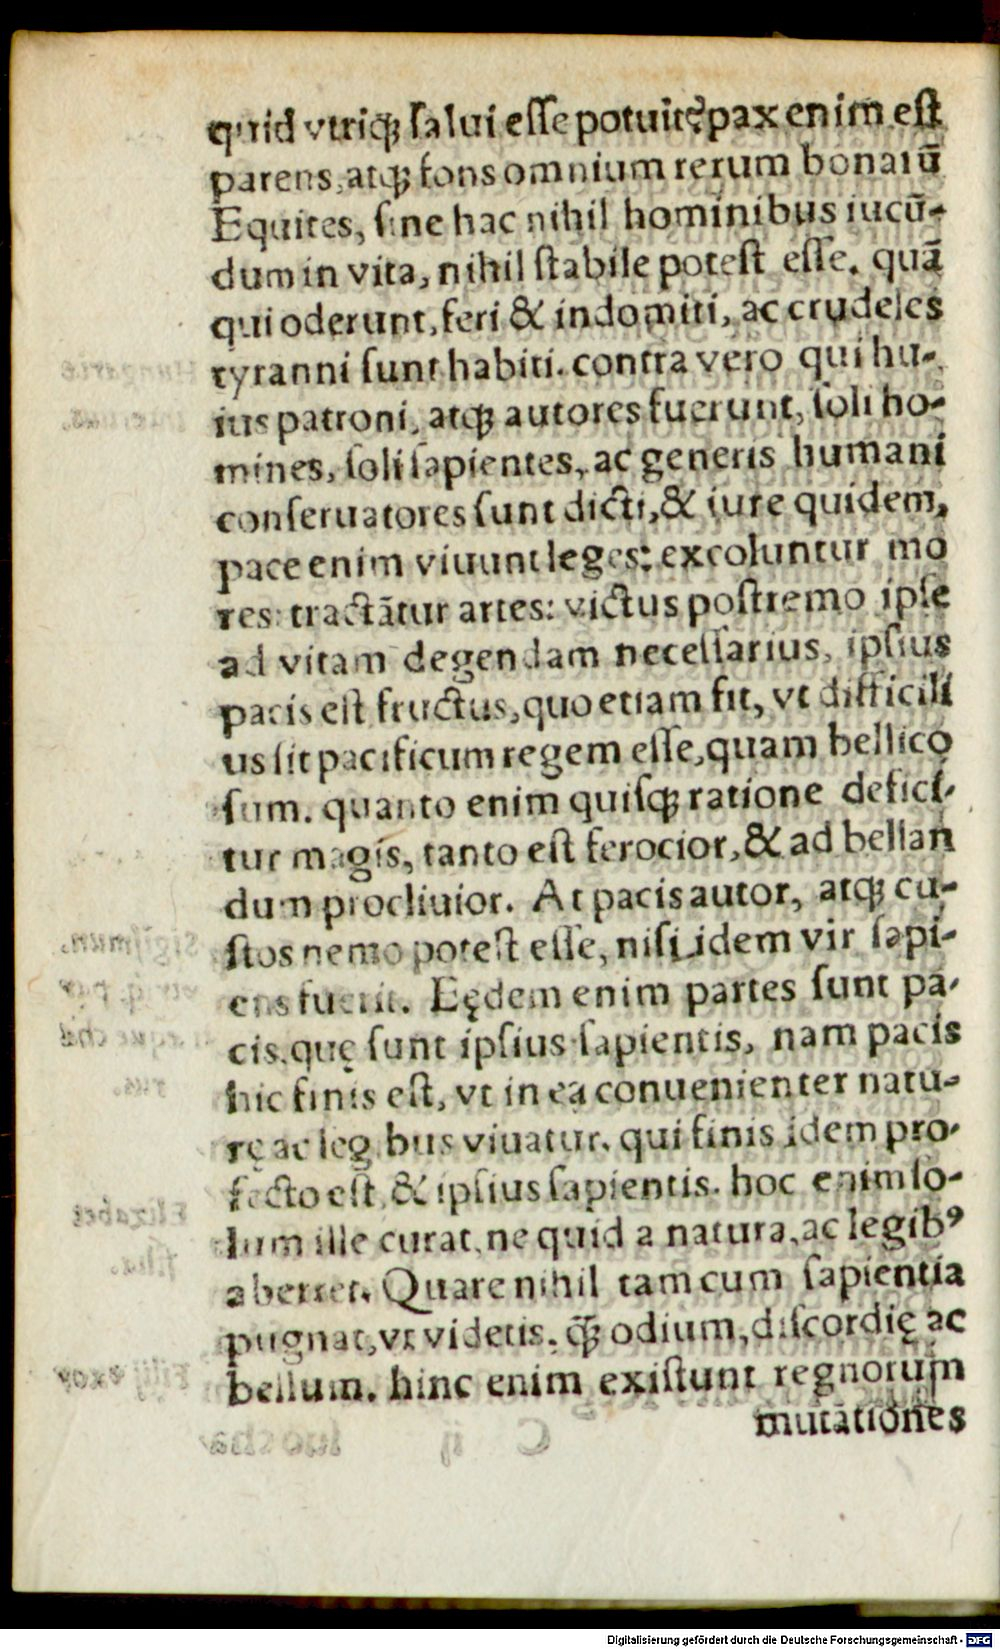 quid vtriq; salui esse potuit? pax enim est
parens, atq; fons omnium rerum bonarū
Equites, sine hac nihil hominibus iucū-
dum in vita, nihil stabile potest esse. quā
qui oderunt, feri & indomiti, ac crudeles
tyranni sunt habiti. contra vero qui hu-
ius patroni, atq; autores fuerunt, soli ho-
mines, soli sapientes, ac generis humani
conseruatores sunt dicti, & iure quidem,
pace enim viuunt leges: excoluntur mo
res: tractātur artes: victus postremo ipse
ad vitam degendam necessarius, ipsius
pacis est fructus, quo etiam fit, vt difficili
us sit pacificum regem esse, quam bellico
sum. quanto enim quisq; ratione defici-
tur magis, tanto est ferocior, & ad bellan
dum procliuior. At pacis autor, atq; cu-
stos nemo potest esse, nisi idem vir sapi-
ens fuerit. Eędem enim partes sunt pa-
cis, quę sunt ipsius sapientis, nam pacis
hic finis est, vt in ea conuenienter natu-
rę ac legibus viuatur. qui finis idem pro-
fecto est, & ipsius sapientis. hoc enim so-
lum ille curat, ne quid a natura, ac legibꝰ
aberret. Quare nihil tam cum sapientia
pugnat, vt videtis, q̄; odium, discordię ac
bellum. hinc enim existunt regnorum
mutationes
Digitalisierung gefördert durch die Deutsche Forschungsgemeinschaft - DFG